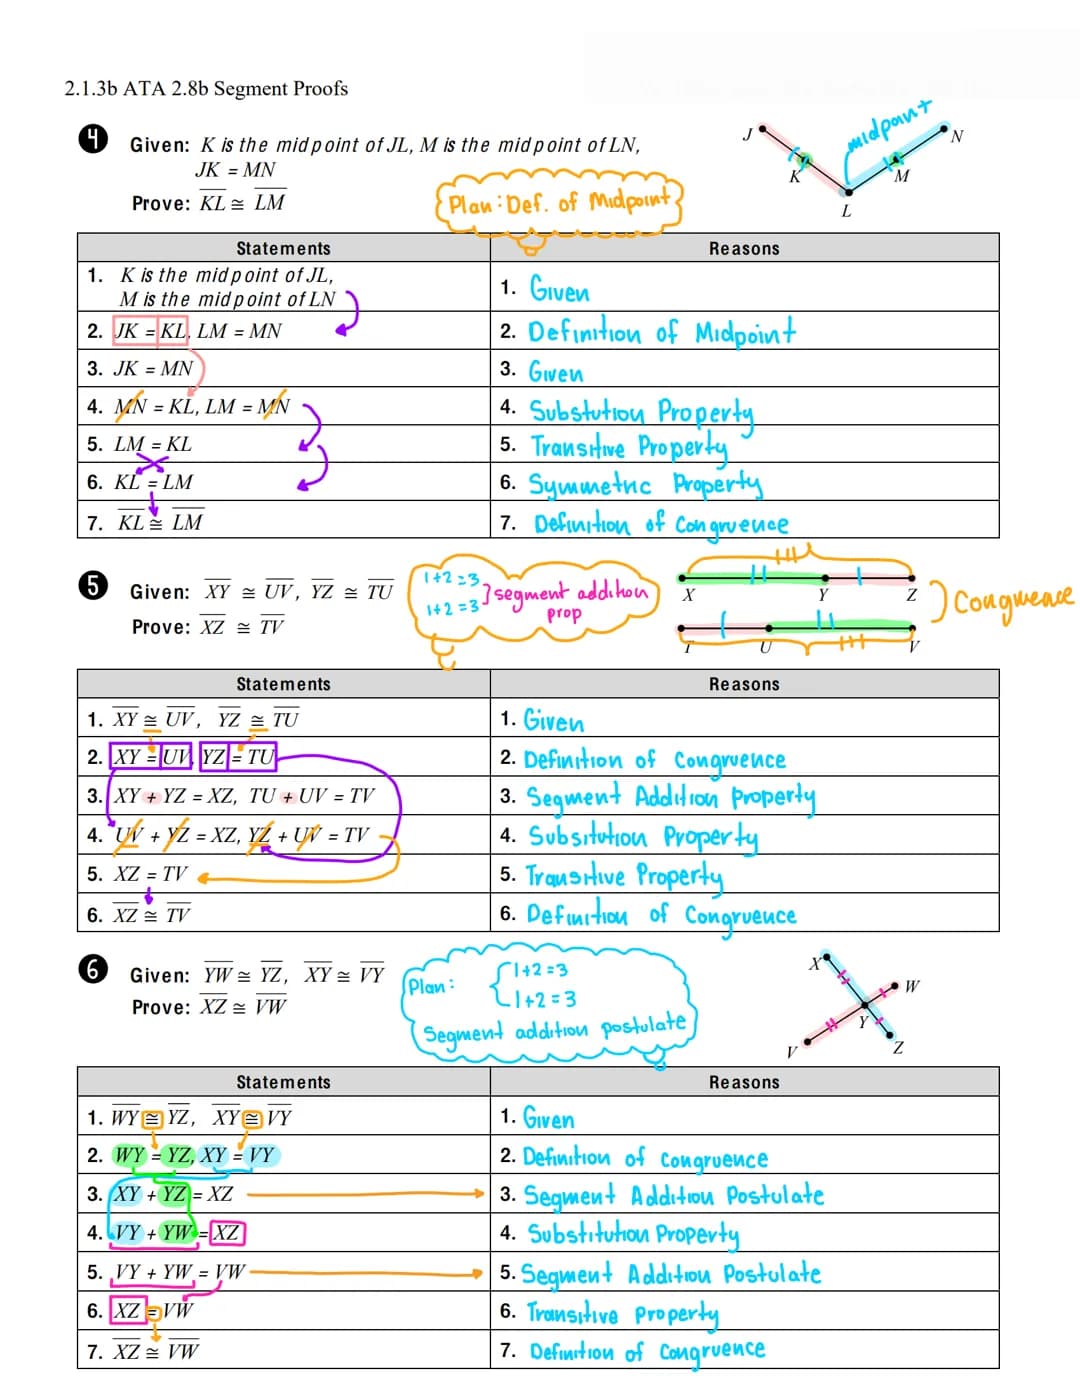 2.1.3b ATA 2.8b Segment Proofs
4 Given: K is the midpoint of JL, M is the midpoint of LN,
JK = MN
Prove: K̅L̅ ≅ L̅M̅
Plan: Def. of Midpoint
midpoint
J
K
L
M
N
Statements Reasons
1. K is the midpoint of JL,
M is the midpoint of LN
1. Given
2. JK = KL, LM = MN 2. Definition of Midpoint
3. JK = MN 3. Given
4. MN = KL, LM = MN 4. Substution Property
5. LM = KL 5. Transitive Property
6. KL = LM 6. Symmetric Property
7. K̅L̅ ≅ L̅M̅ 7. Definition of Congruence
5 Given: X̅Y̅ ≅ U̅V̅, Y̅Z̅ ≅ T̅U̅
Prove: X̅Z̅ ≅ T̅V̅
1+2=3
1+2=3
segment addition
prop
X Y Z
T U V
Congruence
Statements Reasons
1. X̅Y̅ ≅ U̅V̅, Y̅Z̅ ≅ T̅U̅ 1. Given
2. XY = UV, YZ = TU 2. Definition of Congruence
3. XY + YZ = XZ, TU + UV = TV 3. Segment Addition Property
4. UV + YZ = XZ, YZ + UV = TV 4. Subsitution Property
5. XZ = TV 5. Transitive Property
6. X̅Z̅ ≅ T̅V̅ 6. Definition of Congruence
6 Given: Y̅W̅ ≅ Y̅Z̅, X̅Y̅ ≅ V̅Y̅
Prove: X̅Z̅ ≅ V̅W̅
Plan: 1+2=3
1+2=3
Segment addition postulate
X
W
Y
V
Z
Statements Reasons
1. W̅Y̅ ≅ Y̅Z̅, X̅Y̅ ≅ V̅Y̅ 1. Given
2. WY = YZ, XY = VY 2. Definition of Congruence
3. XY + YZ = XZ 3. Segment Addition Postulate
4. VY + YW = XZ 4. Substitution Property
5. VY + YW = VW 5. Segment Addition Postulate
6. XZ = VW 6. Transitive Property
7. X̅Z̅ ≅ V̅W̅ 7. Definition of Congruence